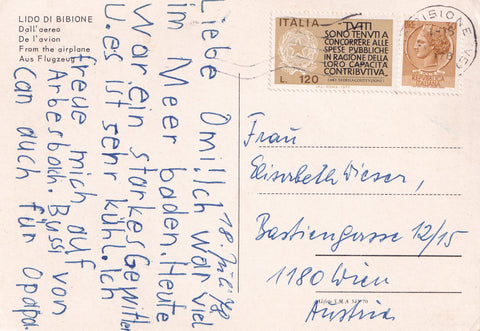 LIDO DI BIBIONE
Dall'aereo
De l'avion
From the airplane
Aus Flugzeug
18. Juli 78
Liebe Omi! Ich war viel
im Meer baden. Heute
war ein starkes Gewitter
u. es ist sehr kühl. Ich
freue mich auf
Arbesbach. Bussi von
Can auch für Opapa.
ITALIA
TUTTI
SONO TENUTI A
CONCORRERE ALLE
SPESE PUBBLICHE
IN RAGIONE DELLA
LORO CAPACITÀ
CONTRIBUTIVA.
L. 120
BIBIONE
Frau
Elisabeth Wieser,
Bastiengasse 12/15
1180 Wien
Austria